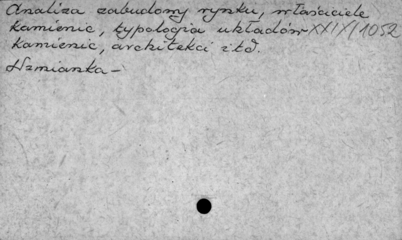 Analiza zabudowy rynku, właściciele
kamienic, typologia układów XXIX/1052
kamienic, architekci itd.
Wzmianka -